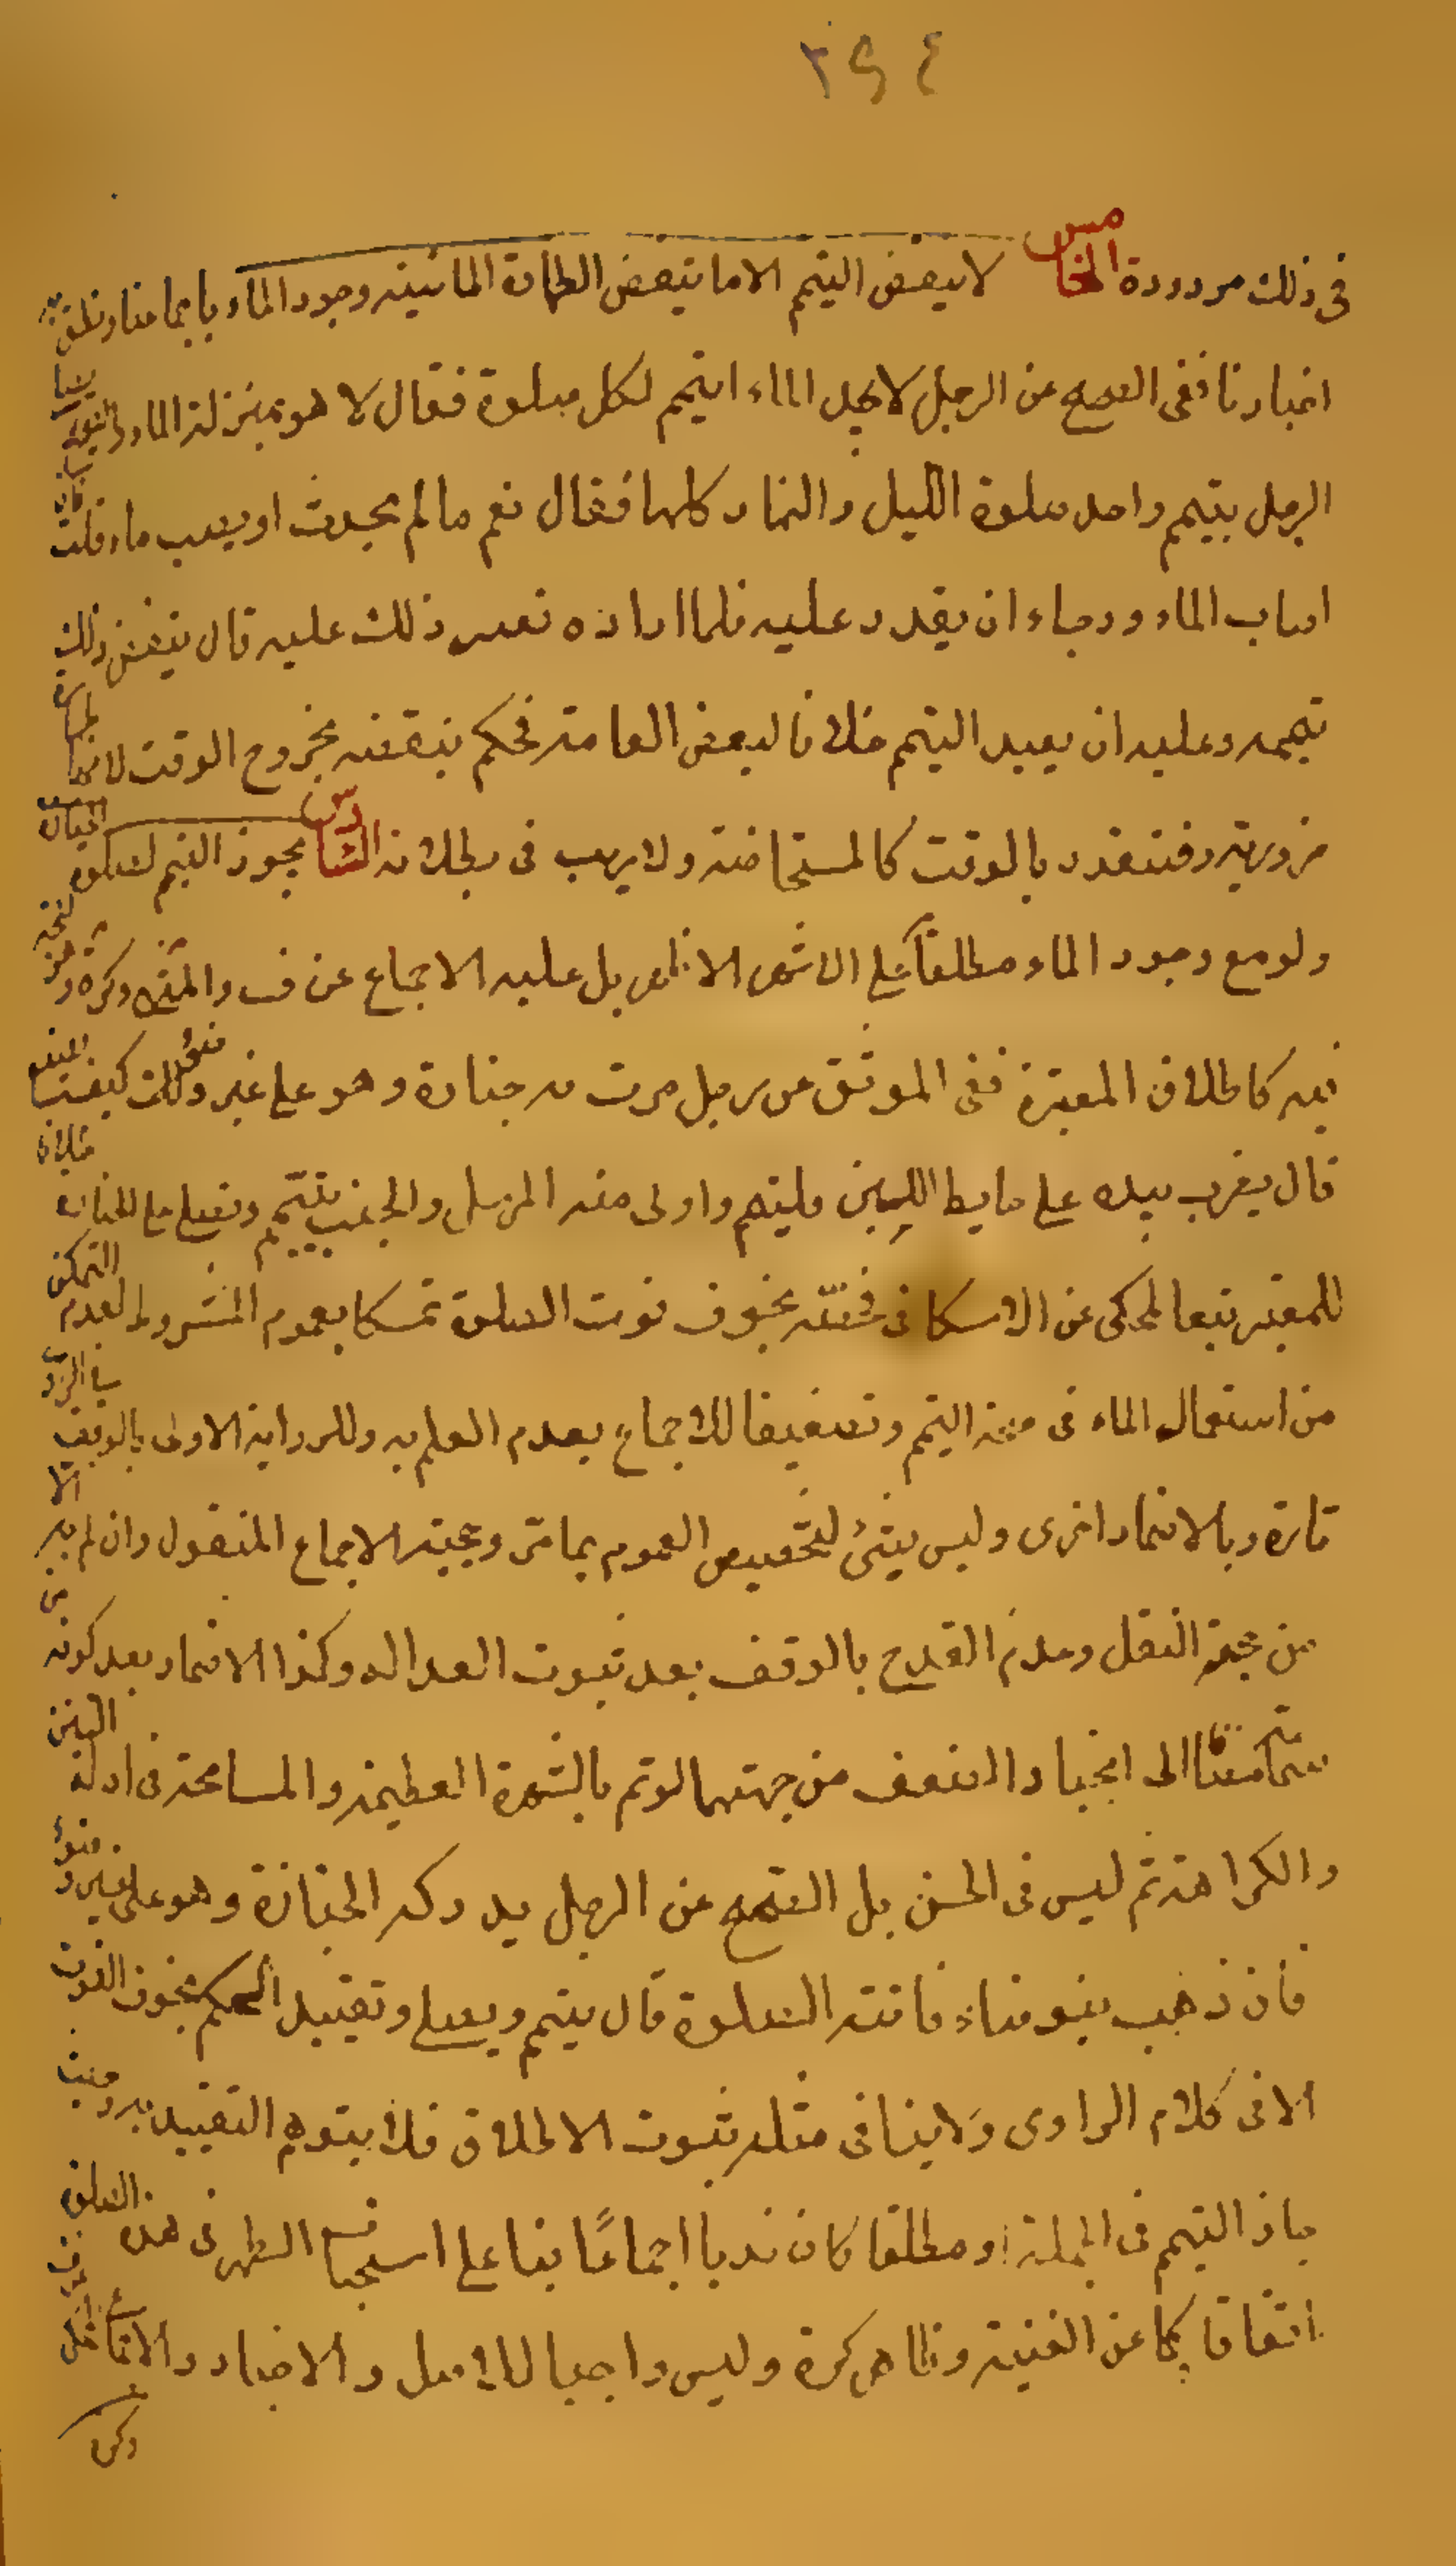 ٢٩٤
في ذلك مردودة الخامس لا ينقض التيمم الا ما ينقض الطهارة المائية و وجود الماء باجماعنا و نطق به
اخبارنا ففي الصحيح عن الرجل لا يجد الماء ايتيمم لكل صلوة فقال لا هو بمنزلة الماء و في القوي يصلي
الرجل بتيمم واحد صلوة الليل و النهار كلها فقال نعم ما لم يحدث او يصب ماء قلت فان
اصاب الماء و رجاء ان يقدر عليه فلما اراده تعسر ذلك عليه قال ينقض ذلك
تيممه و عليه ان يعيد التيمم خلافا لبعض العامة فحكم بنقضه بخروج الوقت لانها طهارة
ضرورية فتقدر بالوقت كالمستحاضة و لا ريب في بطلانه السادس يجوز التيمم لصلوة الجنازة
و لو مع وجود الماء مطلقا على الاشهر الاظهر بل عليه الاجماع عن ف و المنتهى و كرة و هو الحجة
فيه كاطلاق المعتبرة ففي الموثق عن رجل مرت به جنازة و هو على غير وضوء كيف يصنع
قال يضرب بيده على حايط اللبن فليتيمم و اولى منه المرسل و الجنب يتيمم و يصلي على الجنازة خلافا
للمعتبر تبعا للمحكي عن الاسكافي فخصه بخوف فوت الصلوة تمسكا بعموم المشروط لعدم التمكن
من استعمال الماء في صحة التيمم و تضعيفا للاجماع بعدم العلم به و للرواية الاولى بالوقف في الراوي
تارة و بالاضمار اخرى و ليس بشئ لتخصيص العموم بما مر و حجية الاجماع المنقول و ان لم يره الا
من جهة النقل و عدم القدح بالوقف بعد ثبوت العدالة و كذا الاضمار بعد كونه من
سماعة مضافا الى انجبار الضعف من جهتهما لو تم بالشهرة العظيمة و المسامحة في ادلة السنن
و الكراهة ثم ليس في الحسن بل الصحيح عن الرجل يدركه الجنازة و هو على غير وضوء
فان ذهب يتوضاء فاتته الصلوة قال يتيمم و يصلي و تقييد الحكم بخوف الفوت
الا في كلام الراوي و لا ينافي مثله ثبوت الاطلاق فلا يتوهم التقييد به و حيث
جاز التيمم في الجملة او مطلقا كان ندبا اجماعًا بناء على استحباب الطهر في هذه الصلوة
اتفاقا كما عن الغنية و ظاهر كرة و ليس واجبا للاصل و الاخبار و الاتفاق